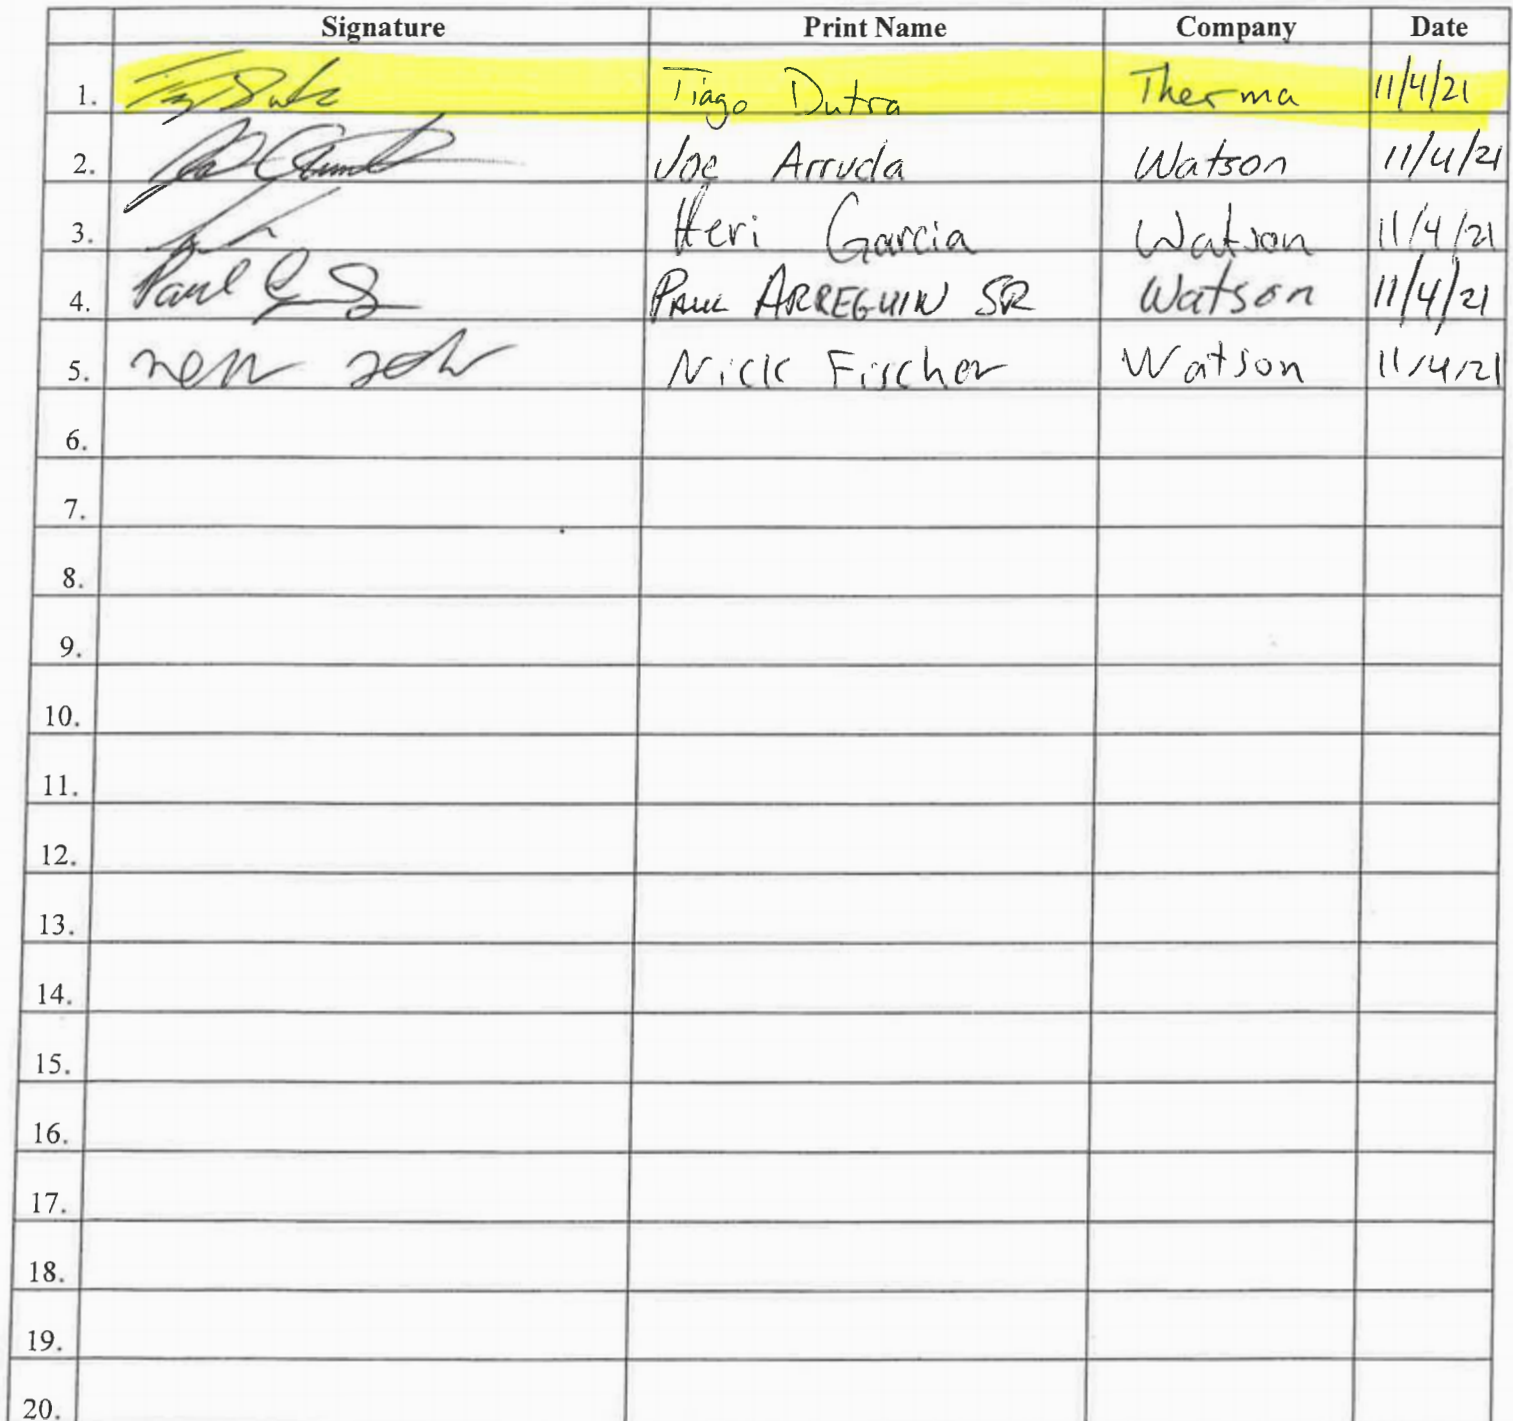 Signature Print Name Company Date
1. Tiago Dutra Therma 11/4/21
2. Joe Arruda Watson 11/4/21
3. Heri Garcia Watson 11/4/21
4. Paul PAUL ARREGUIN SR Watson 11/4/21
5. Nick Fischer Watson 11/4/21
6.
7.
8.
9.
10.
11.
12.
13.
14.
15.
16.
17.
18.
19.
20.